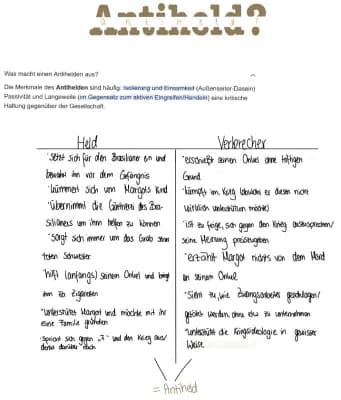 Antiheld?
Was macht einen Antihelden aus?
Die Merkmale des Antihelden sind häufig: Isolierung und Einsamkeit (Außenseiter-Dasein)
Passivität und Langeweile (im Gegensatz zum aktiven Eingreifen/Handeln) eine kritische
Haltung gegenüber der Gesellschaft.
Held
·setzt sich für den Brasilianer ein und
bewahrt ihn vor dem Gefängnis
·kümmert sich um Margots Kind
·übernimmt die Gärtnerei des Bra-
silianers um ihm helfen zu können
·sorgt sich immer um das Grab
toten Schwester
·hilft (anfangs) seinem Onkel und bringt
ihm Zigaretten
·unterstützt Margot und möchte mit ihr
eine Familie gründen
·Spricht sich gegen „F" und den Krieg aus/
denkt darüber nach
Verbrecher
·erschießt seinen Onkel ohne triftigen
Grund
·kämpft im Krieg (obwohl er diesen nicht
wirklich unterstützen möchte)
·ist zu feige, sich gegen den Krieg auszusprechen/
seine Meinung preiszugeben
·erzählt Margot nichts von dem Mord
an seinem Onkel
·Sieht zu, wie Zwangsarbeiter geschlagen/
getötet werden ohne etw. zu unternehmen
·unterstützt die Kriegsideologie in gewisser
Weise
= Antiheld